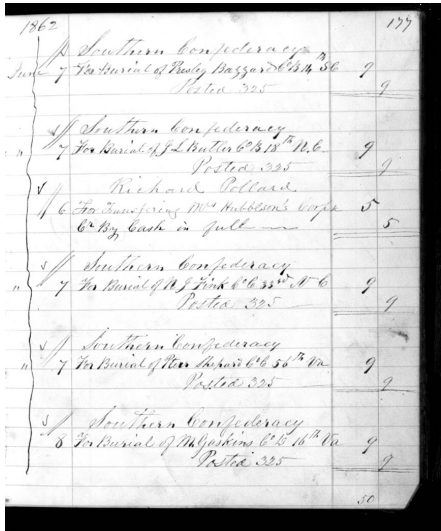 1862 177
Southern Confederacy
June 7 For Burial of Presley Baggard Co B 14th SC 9
Posted 325 9
Southern Confederacy
" 7 For Burial of J L Butler Co B 18th N.C 9
Posted 325 9
Richard Pollard
6 For Transfering Mrs Hubbleson's Corps 5
Cr By Cash in full 5
Southern Confederacy
" 7 For Burial of N J Fink Co C 33rd N C 9
Posted 325 9
Southern Confederacy
" 7 For Burial of Shepard Co C 56th Va 9
Posted 325 9
Southern Confederacy
8 For Burial of M Gaskins Co B 16th Va 9
Posted 325 9
50